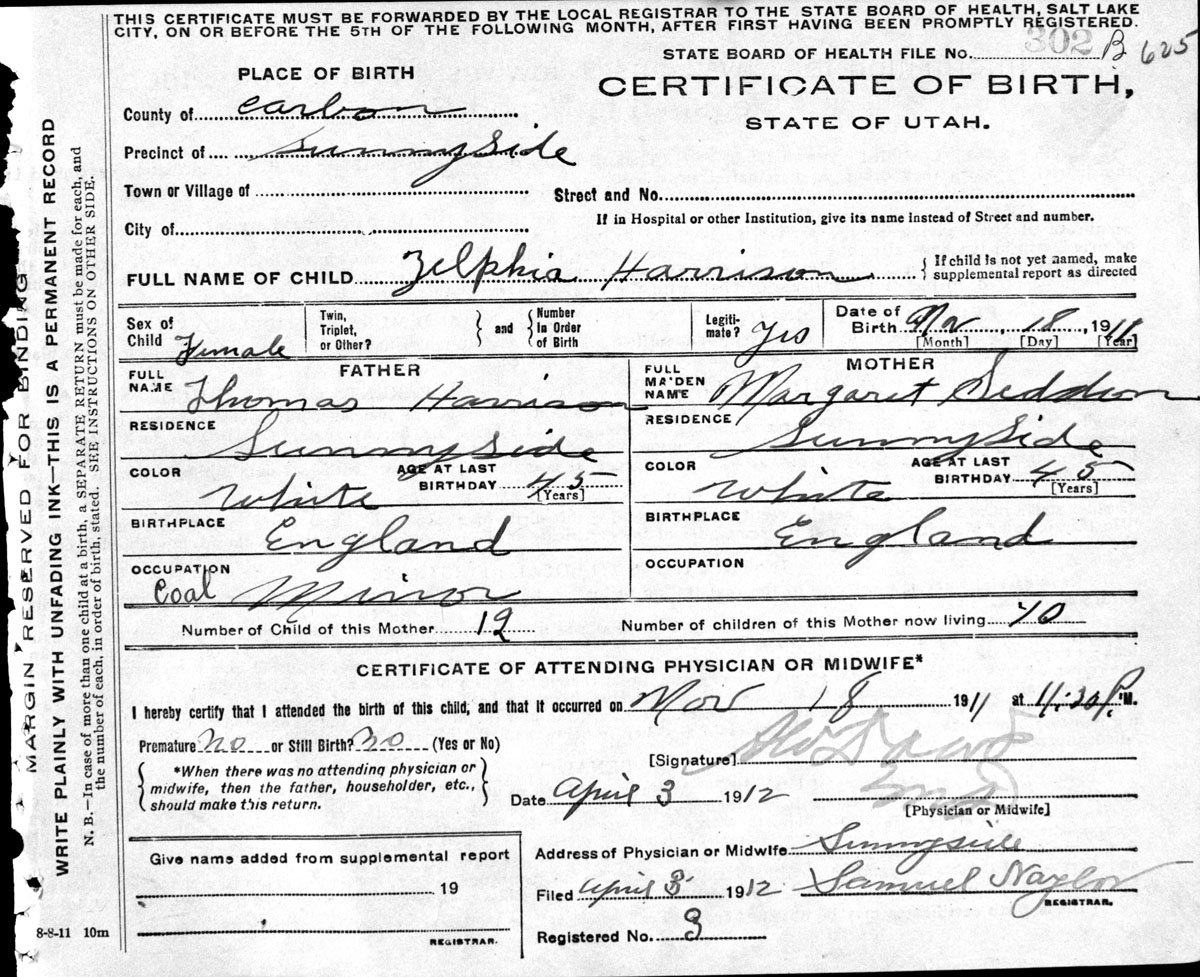 THIS CERTIFICATE MUST BE FORWARDED BY THE LOCAL REGISTRAR TO THE STATE BOARD OF HEALTH, SALT LAKE
CITY, ON OR BEFORE THE 5TH OF THE FOLLOWING MONTH, AFTER FIRST HAVING BEEN PROMPTLY REGISTERED.
STATE BOARD OF HEALTH FILE No. 302 B 625
PLACE OF BIRTH
CERTIFICATE OF BIRTH,
STATE OF UTAH.
County of Carbon
Precinct of Sunnyside
Town or Village of
Street and No.
If in Hospital or other Institution, give its name instead of Street and number.
City of
FULL NAME OF CHILD Zelphia Harrison
{ If child is not yet named, make
supplemental report as directed
Sex of Child Female
Twin, Triplet, or Other?
} and {
Number In Order of Birth
Legiti-mate? Yes
Date of Birth Nov, 18, 1911
[Month] [Day] [Year]
FATHER
FULL NAME Thomas Harrison
RESIDENCE Sunnyside
COLOR White
AGE AT LAST BIRTHDAY 45
[Years]
BIRTHPLACE England
OCCUPATION Coal Minor
MOTHER
FULL MAIDEN NAME Margaret Seddon
RESIDENCE Sunnyside
COLOR White
AGE AT LAST BIRTHDAY 45
[Years]
BIRTHPLACE England
OCCUPATION
Number of Child of this Mother 12
Number of children of this Mother now living 10
CERTIFICATE OF ATTENDING PHYSICIAN OR MIDWIFE*
I hereby certify that I attended the birth of this child, and that it occurred on Nov 18 1911 at 11:20 P.M.
Premature No or Still Birth? No (Yes or No)
{ *When there was no attending physician or
midwife, then the father, householder, etc.,
should make this return. }
[Signature]
Date April 3 1912
[Physician or Midwife]
Give name added from supplemental report
19
REGISTRAR.
Address of Physician or Midwife Sunnyside
Filed April 3 1912 Samuel Naylor
REGISTRAR.
Registered No. 3
8-8-11 10m
MARGIN RESERVED FOR BINDING
WRITE PLAINLY WITH UNFADING INK—THIS IS A PERMANENT RECORD
N. B.—In case of more than one child at a birth, a SEPARATE RETURN must be made for each, and
the number of each, in order of birth, stated. SEE INSTRUCTIONS ON OTHER SIDE.